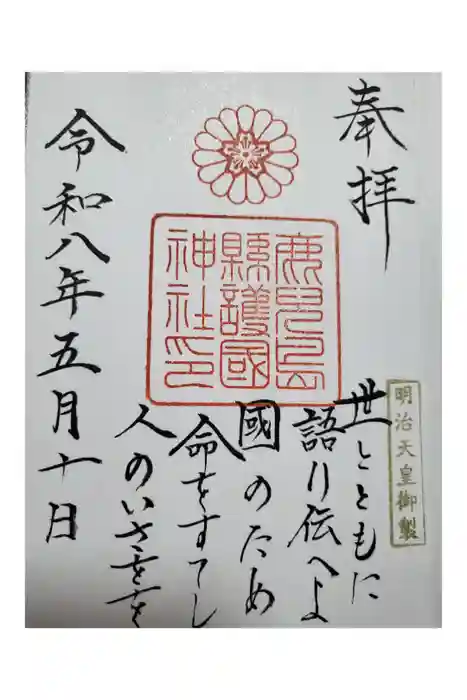 奉拝
鹿児島
縣護國
神社印
明治天皇御製
世とともに
語り伝へよ
國のため
命をすてし
人のいさをを
令和八年五月十日